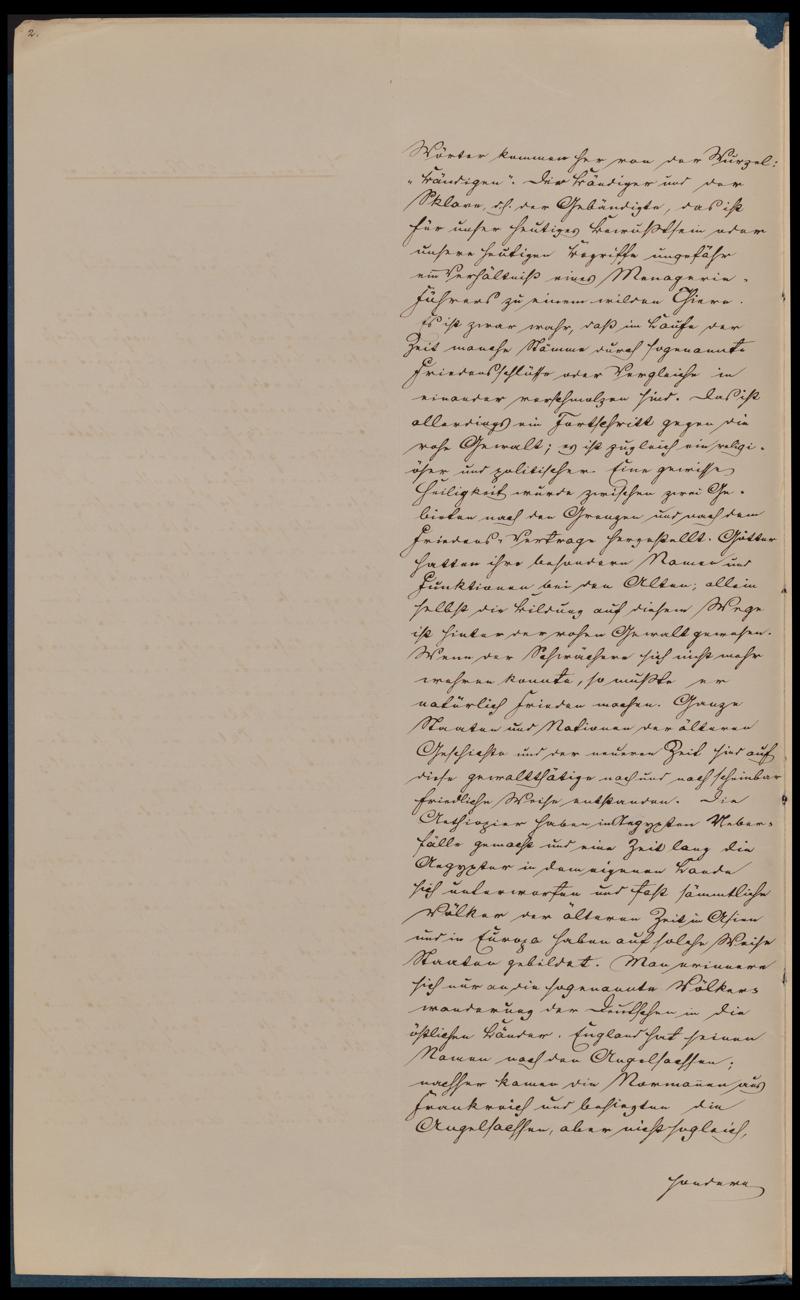 2.
Wörter kommen her von der Wurzel:
"bändigen". Der Bändiger und der
Sklave, d.h. der Gebändigte, das ist
für unser heutiges Bewußtsein oder
unsere heutigen Begriffe ungefähr
ein Verhältniß eines Menagerie-
Führers zu einem wilden Thiere.
Es ist zwar wahr, daß im Laufe der
Zeit manche Stämme durch sogenannte
Friedensschlüsse oder Vergleiche in
einander verschmolzen sind. Das ist
allerdings ein Fortschritt gegen die
rohe Gewalt; es ist zugleich ein religi-
öser und politischer. Eine gewisse
Heiligkeit wurde zwischen zwei Ge-
bieten nach den Grenzen und nach dem
Friedens-Vertrage hergestellt. Götter
hatten ihre besondern Namen und
Funktionen bei den Alten; allein
selbst die Bildung auf diesem Wege
ist hinter der rohen Gewalt gewesen.
Wenn der Schwächere sich nicht mehr
wehren konnte, so mußte er
natürlich Frieden machen. Ganze
Staaten und Nationen der älteren
Geschichte und der neueren Zeit sind auf
diese gewaltthätige nach und nach scheinbar
friedliche Weise entstanden. Die
Aethiopier haben in Aegypten Ueber-
fälle gemacht und eine Zeit lang die
Aegypter in dem eigenen Lande
sich unterworfen und fast sämmtliche
Völker der älteren Zeit in Asien
und in Europa haben auf solche Weise
Staaten gebildet. Man erinnere
sich nur an die sogenannte Völker-
wanderung der Deutschen in die
östlichen Länder. England hat seinen
Namen nach den Angelsachsen;
nachher kamen die Normannen aus
Frankreich und besiegten die
Angelsachsen, aber nicht sogleich,
sondern